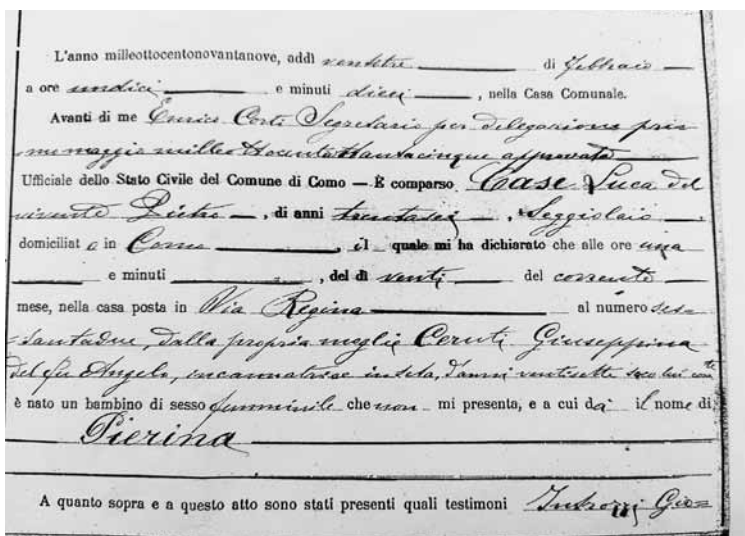 L'anno milleottocentonovantanove, addì ventitre di febbraio
a ore undici e minuti dieci, nella Casa Comunale.
Avanti di me Enrico Corti Segretario per delegazione pri=
mo maggio milleottocentottantacinque approvata
Ufficiale dello Stato Civile del Comune di Como — È comparso Case Luca del
vivente Pietro, di anni trentasei, Seggiolaio,
domiciliato in Como, il quale mi ha dichiarato che alle ore una
e minuti , del dì venti del corrente
mese, nella casa posta in Via Regina al numero ses=
santadue, dalla propria moglie Ceruti Giuseppina
del fu Angelo, incannatrice in seta, d'anni ventisette seco lui conte
è nato un bambino di sesso femminile che non mi presenta, e a cui dà il nome di
Pierina
A quanto sopra e a questo atto sono stati presenti quali testimoni Introzzi Gio=